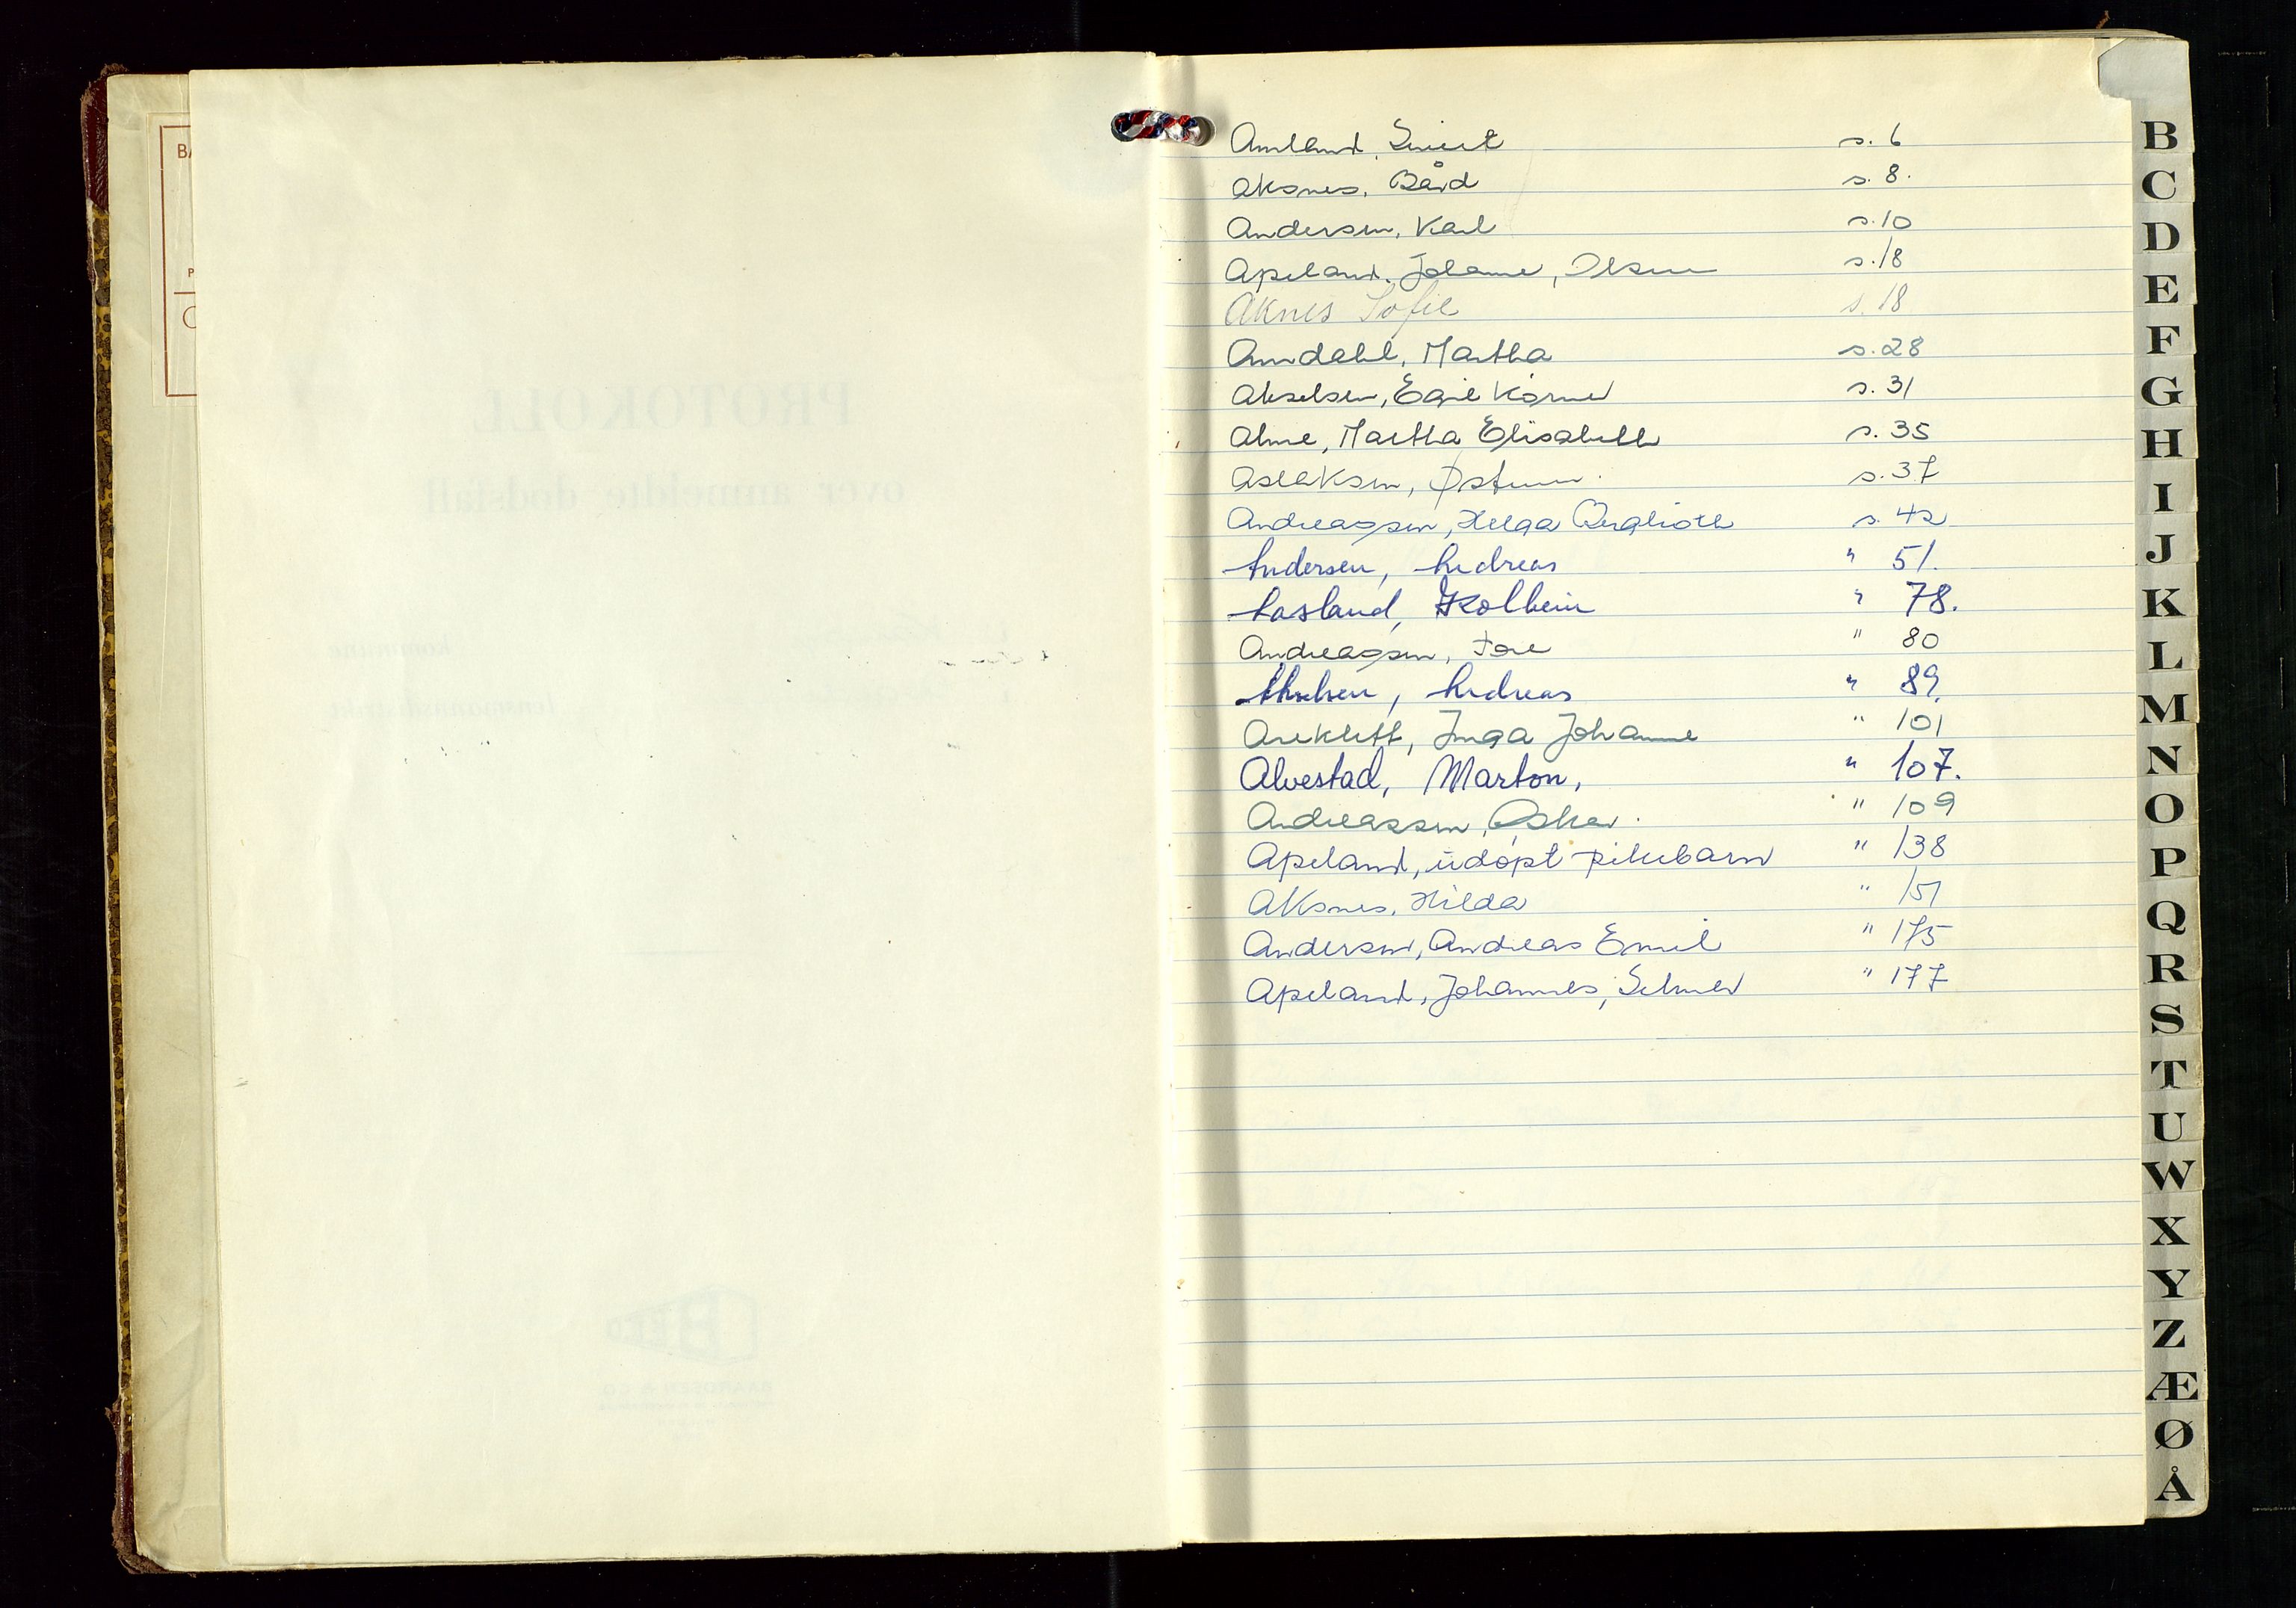 Amland, Sivert s. 6
Aksnes, Bård s. 8.
Andersen, Karl s. 10
Apeland, Johanne, Olsen s. 18
Aknes Sofie s. 18
Amdahl, Martha s. 28
Akselsen, Egil Kornel s. 31
Alme, Martha Elisabeth s. 35
Aslaksen, Østen s. 37
Andreassen, Helga Bergliot s. 42
Andersen, Andreas " 51.
Aasland, Kolbein " 78.
Andreassen, Tore " 80
Andreas " 89.
Areklett, Inga Johanne " 101
Alvestad, Marton, " 107.
Andreassen, Oskar. " 109
Apeland, udøpt pikebarn " 138
Aksnes, Hilda " 151
Andersen, Andreas Emil " 175
Apeland, Johannes, Selmer " 177
B
C
D
E
F
G
H
I
J
K
L
M
N
O
P
Q
R
S
T
U
W
X
Y
Z
Æ
Ø
Å